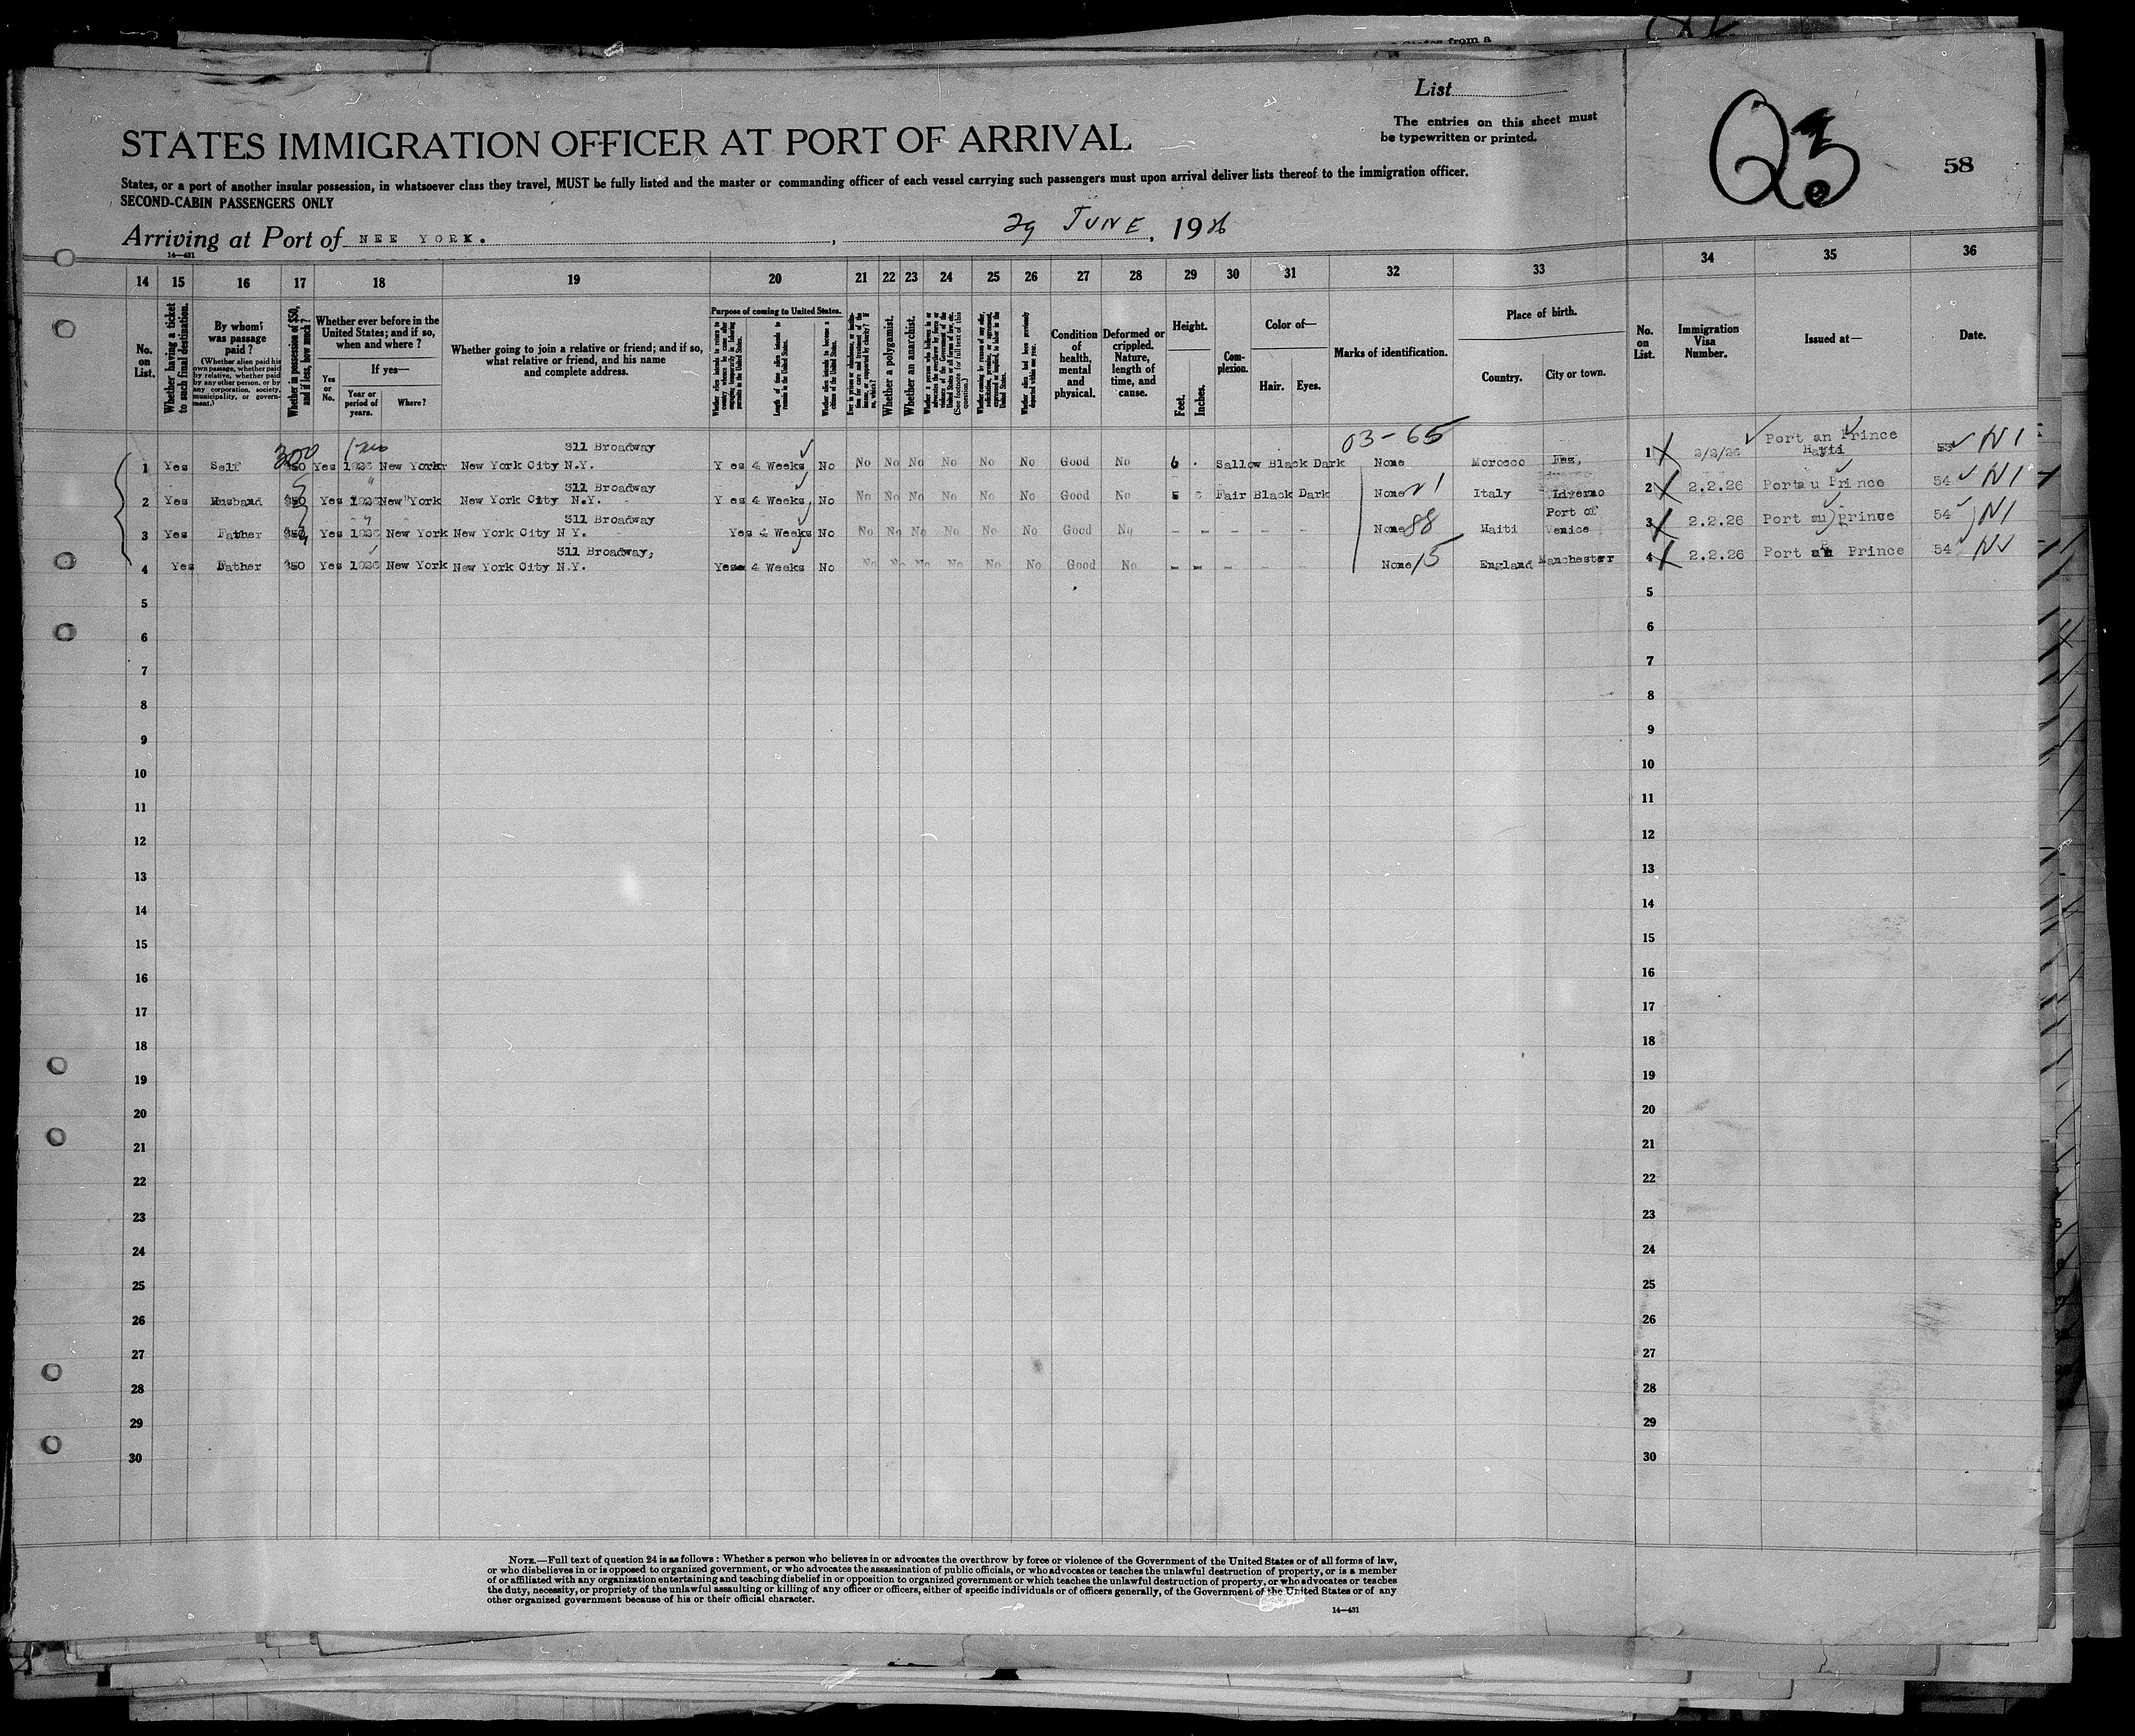 States from a
List
The entries on this sheet must
be typewritten or printed.
STATES IMMIGRATION OFFICER AT PORT OF ARRIVAL
Q3
58
States, or a port of another insular possession, in whatsoever class they travel, MUST be fully listed and the master or commanding officer of each vessel carrying such passengers must upon arrival deliver lists thereof to the immigration officer.
SECOND-CABIN PASSENGERS ONLY
Arriving at Port of NEE YORK. , 29 JUNE, 1926
14—431
14 15 16 17 18 19 20 21 22 23 24 25 26 27 28 29 30 31 32 33 34 35 36
No. on List.
Whether having a ticket to such final destination.
By whom was passage paid?
(Whether alien paid his own passage, whether paid by relative, whether paid by any other person, or by any corporation, society, municipality, or government.)
Whether in possession of $50, and if less, how much?
Whether ever before in the United States; and if so, when and where?
Yes or No.
If yes—
Year or period of years.
Where?
Whether going to join a relative or friend; and if so, what relative or friend, and his name and complete address.
Purpose of coming to United States.
Length of time alien intends to remain in the United States.
Whether alien intends to become a citizen of the United States.
Whether a polygamist.
Whether an anarchist.
(See footnote for full text of this question.)
Whether alien had been previously deported within one year.
Condition of health, mental and physical.
Deformed or crippled. Nature, length of time, and cause.
Height.
Feet.
Inches.
Complexion.
Color of—
Hair.
Eyes.
Marks of identification.
Place of birth.
Country.
City or town.
No. on List.
Immigration Visa Number.
Issued at—
Date.
03-65
311 Broadway
Port an Prince
1 Yes Self 300 $50 Yes New York New York City N.Y. Yes 4 Weeks No No No No No No No Good No 6 Sallow Black Dark None Morocco Fez, 1 2/2/26 Hayti 53 N I
311 Broadway
2 Yes Husband $50 Yes New York New York City N.Y. Yes 4 Weeks No No No No No No No Good No 5 Fair Black Dark None Italy Liverno 2 2.2.26 Port au Prince 54 N I
311 Broadway
Port of
3 Yes Father Yes New York New York City N Y. Yes 4 Weeks No No No No No No No Good No - - - - - None 88 Haiti Venice 3 2.2.26 Port au prince 54 N I
311 Broadway,
4 Yes Father $50 Yes 1926 New York New York City N.Y. Yes 4 Weeks No No No No No No No Good No - - - - - None 15 England Manchester 4 2.2.26 Port an Prince 54
5 5
6 6
7 7
8 8
9 9
10 10
11 11
12 12
13 13
14 14
15 15
16 16
17 17
18 18
19 19
20 20
21 21
22 22
23 23
24 24
25 25
26 26
27 27
28 28
29 29
30 30
NOTE.—Full text of question 24 is as follows: Whether a person who believes in or advocates the overthrow by force or violence of the Government of the United States or of all forms of law,
or who disbelieves in or is opposed to organized government, or who advocates the assassination of public officials, or who advocates or teaches the unlawful destruction of property, or is a member
of or affiliated with any organization entertaining and teaching disbelief in or opposition to organized government or which teaches the unlawful destruction of property, or who advocates or teaches
the duty, necessity, or propriety of the unlawful assaulting or killing of any officer or officers, either of specific individuals or of officers generally, of the Government of the United States or of any
other organized government because of his or their official character.
14—431